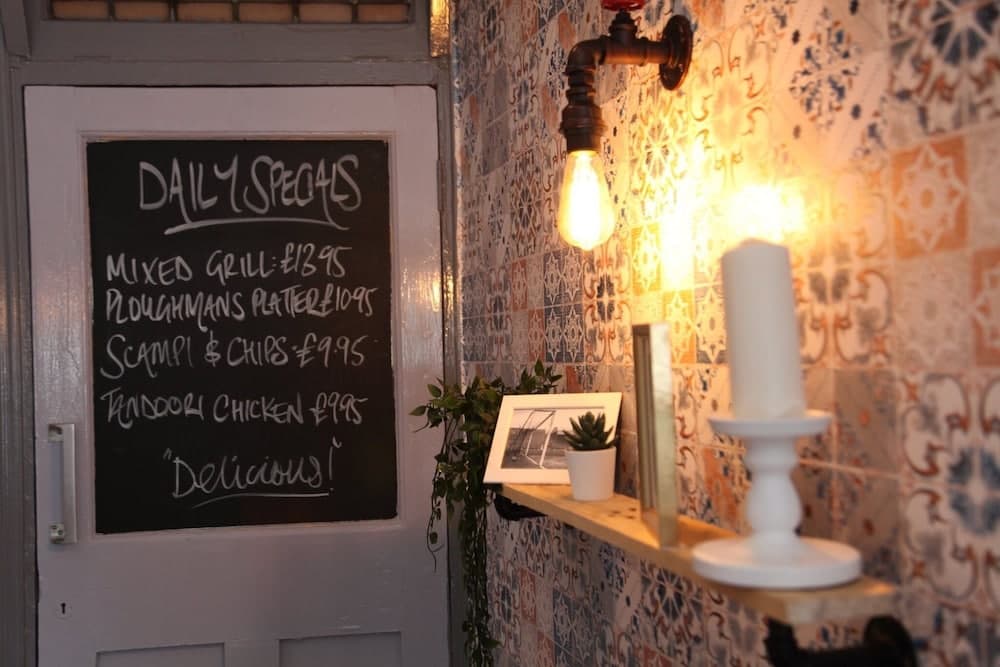 DAILY SPECIALS
MIXED GRILL: £13.95
PLOUGHMANS PLATTER £10.95
SCAMPI & CHIPS - £9.95
TANDOORI CHICKEN £9.95
"Delicious!"